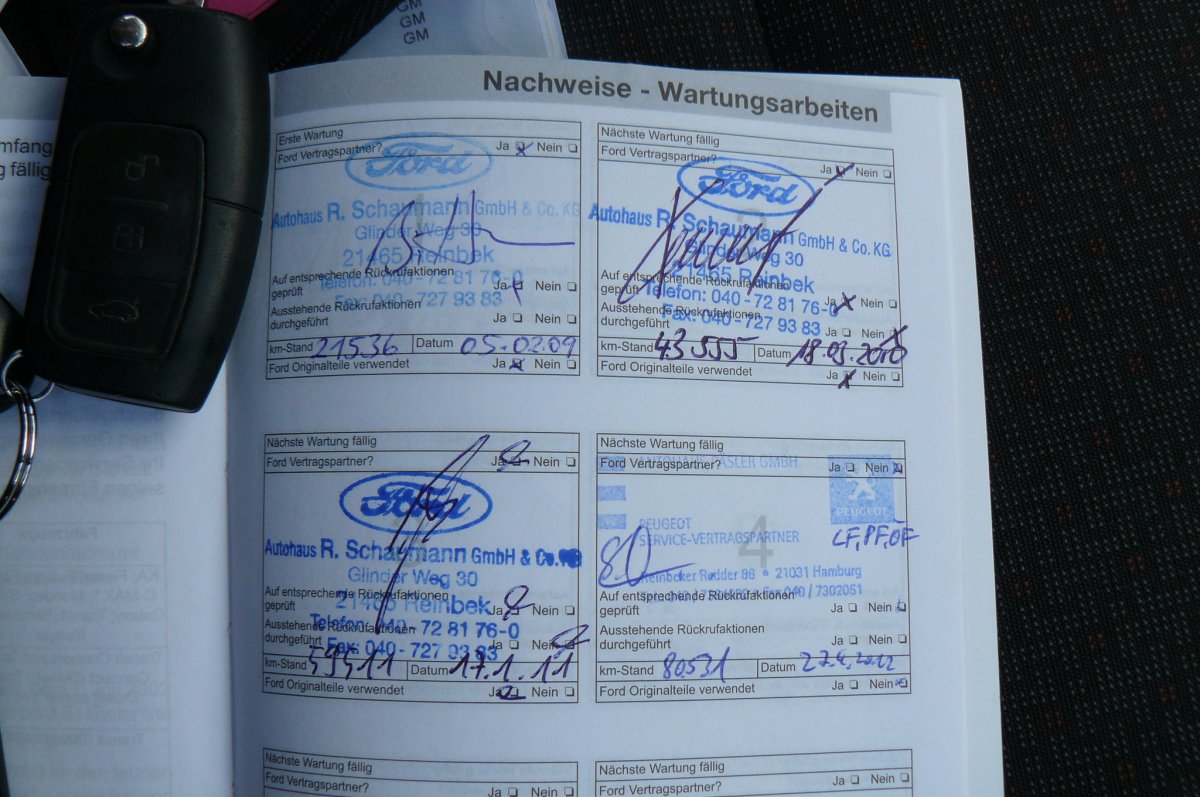 GM
GM
GM
Nachweise - Wartungsarbeiten
mfang
g fällig
Erste Wartung
Ford Vertragspartner? Ja Nein
Ford
Autohaus R. Schaumann GmbH & Co. KG
Glinder Weg 30
21465 Reinbek
Auf entsprechende Rückrufaktionen
geprüft Ja Nein
Telefon: 040 - 72 81 76-0
Fax: 040 - 727 93 83
Ausstehende Rückrufaktionen
durchgeführt Ja Nein
km-Stand 21536 Datum 05.02.09
Ford Originalteile verwendet Ja Nein
Nächste Wartung fällig
Ford Vertragspartner? Ja Nein
Ford
2
Autohaus R. Schaumann GmbH & Co. KG
Glinder Weg 30
21465 Reinbek
Auf entsprechende Rückrufaktionen
geprüft Ja Nein
Telefon: 040 - 72 81 76-0
Ausstehende Rückrufaktionen
Fax: 040 - 727 93 83
durchgeführt Ja Nein
km-Stand 43555 Datum 18.03.2010
Ford Originalteile verwendet Ja Nein
Nächste Wartung fällig
Ford Vertragspartner? Ja Nein
Ford
Autohaus R. Schaumann GmbH & Co. KG
Glinder Weg 30
Auf entsprechende Rückrufaktionen
21465 Reinbek
geprüft Ja Nein
Telefon: 040 - 72 81 76-0
Ausstehende Rückrufaktionen
durchgeführt Ja Nein
Fax: 040 - 727 93 83
km-Stand 59411 Datum 17.1.11
Ford Originalteile verwendet Ja Nein
Nächste Wartung fällig
AUTOHAUS GMBH
Ford Vertragspartner? Ja Nein
PEUGEOT
PEUGEOT
SERVICE-VERTRAGSPARTNER
4
LF, PF, ÖF
Reinbeker Redder 98 • 21031 Hamburg
040 / 7302051
Auf entsprechende Rückrufaktionen
geprüft Ja Nein
Ausstehende Rückrufaktionen
durchgeführt Ja Nein
km-Stand 80531 Datum 27.4.2012
Ford Originalteile verwendet Ja Nein
Nächste Wartung fällig
Ford Vertragspartner? Ja Nein
Nächste Wartung fällig
Ford Vertragspartner? Ja Nein